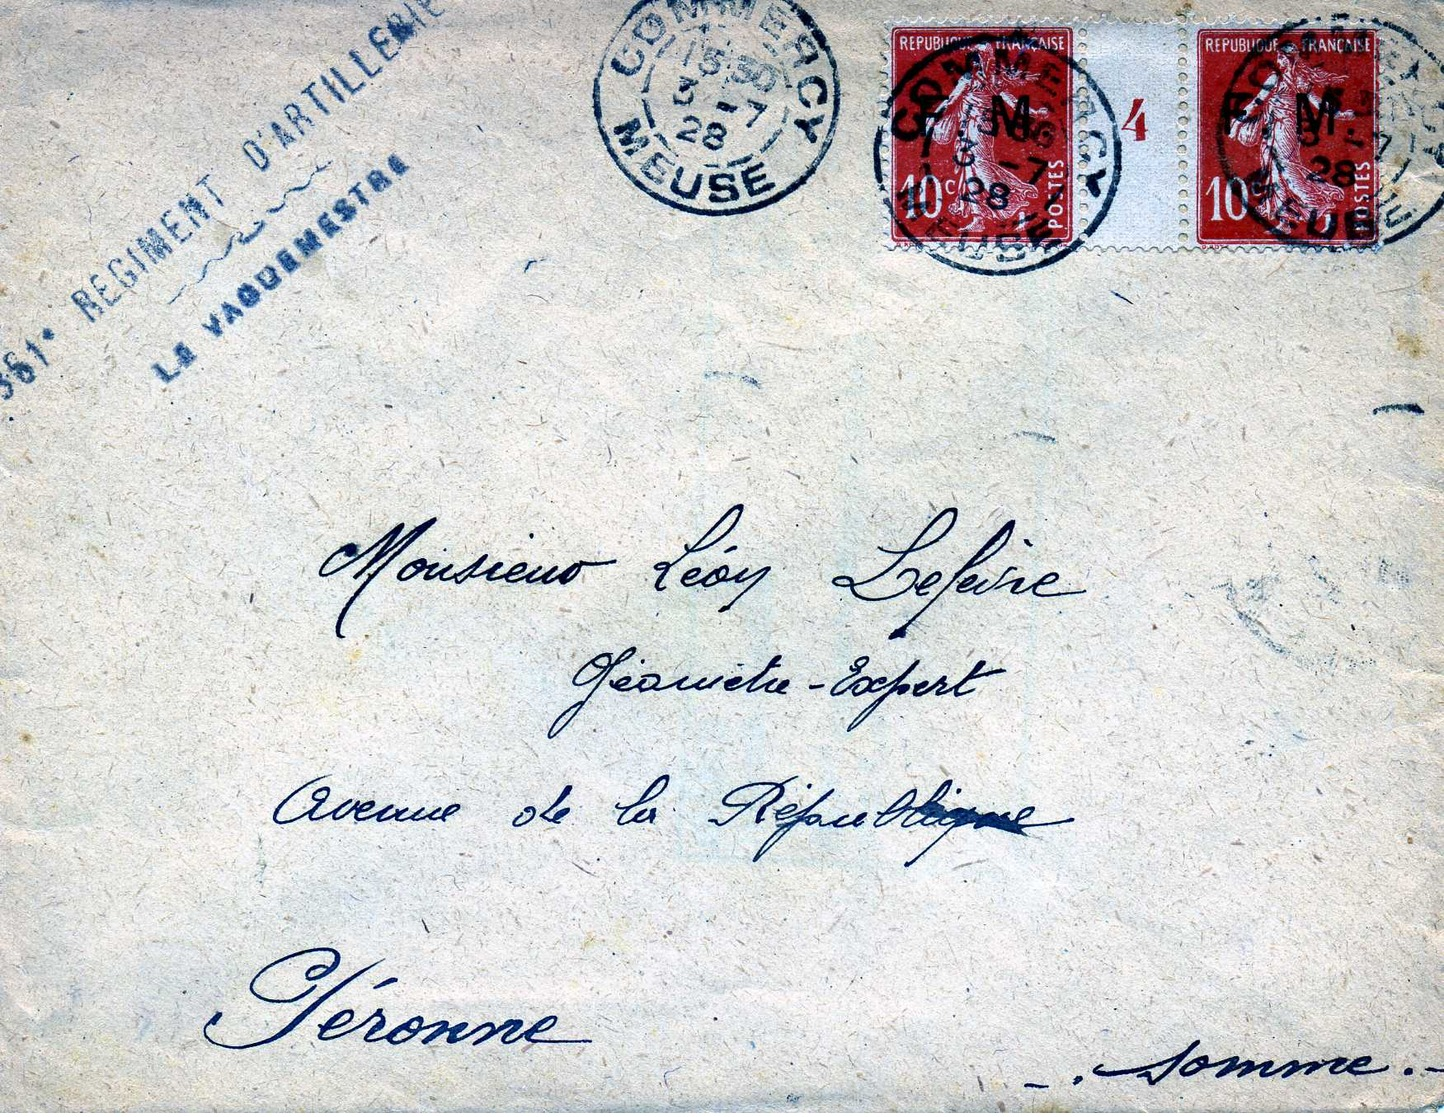 361e REGIMENT D'ARTILLERIE
LE VAGUEMESTRE
COMMERCY
15 30
3 -7
28
MEUSE
REPUBLIQUE FRANÇAISE
F M
10c
POSTES
4
REPUBLIQUE FRANÇAISE
F M
10c
POSTES
COMMERCY
3 -7
28
MEUSE
COMMERCY
3 -7
28
MEUSE
Monsieur Léon Lefèvre
Géomètre-Expert
Avenue de la République
Péronne
-. Somme .-